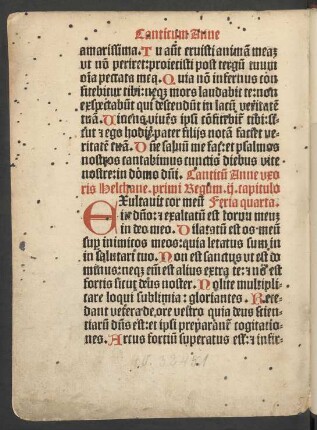 Canticum Anne
amarissima. Tu aūt eruisti animā meaꝫ
ut nō periret: proiecisti post tergū tuum
oīa peccata mea. Quia nō infernus con
fitebitur tibi: neqꝫ mors laudabit te: non
exspectabūt qui descendūt in lacū veritatē
tuā. Uiuens, viuēs ipsi cōfitebit̄ tibi: si-
cut ⁊ ego hodie: pater filijs notā faciet ve-
ritatē tuā. Dn̄e saluū me fac: et psalmos
nostros cantabimus cunctis diebus vite
nostre: in domo dn̄i. Canticū Anne vxo
ris Helchane. primi Regum. ij. capitulo
Exultauit cor meū Feria quarta.
in dn̄o: ⁊ exaltatū est cornu meuꝫ
in deo meo. Dilatatū est os meū
sup inimicos meos: quia letatus sum in
in salutari tuo. Non est sanctus ut est do
minus: neqꝫ em̄ est alius extra te: ⁊ nō est
fortis sicut deus noster. Nolite multipli-
care loqui sublimia: gloriantes. Rece-
dant vetera de ore vestro quia deus scien-
tiarū dn̄s est: et ipsi preparant̄ cogitatio-
nes. Arcus fortiū superatus est: ⁊ infir-